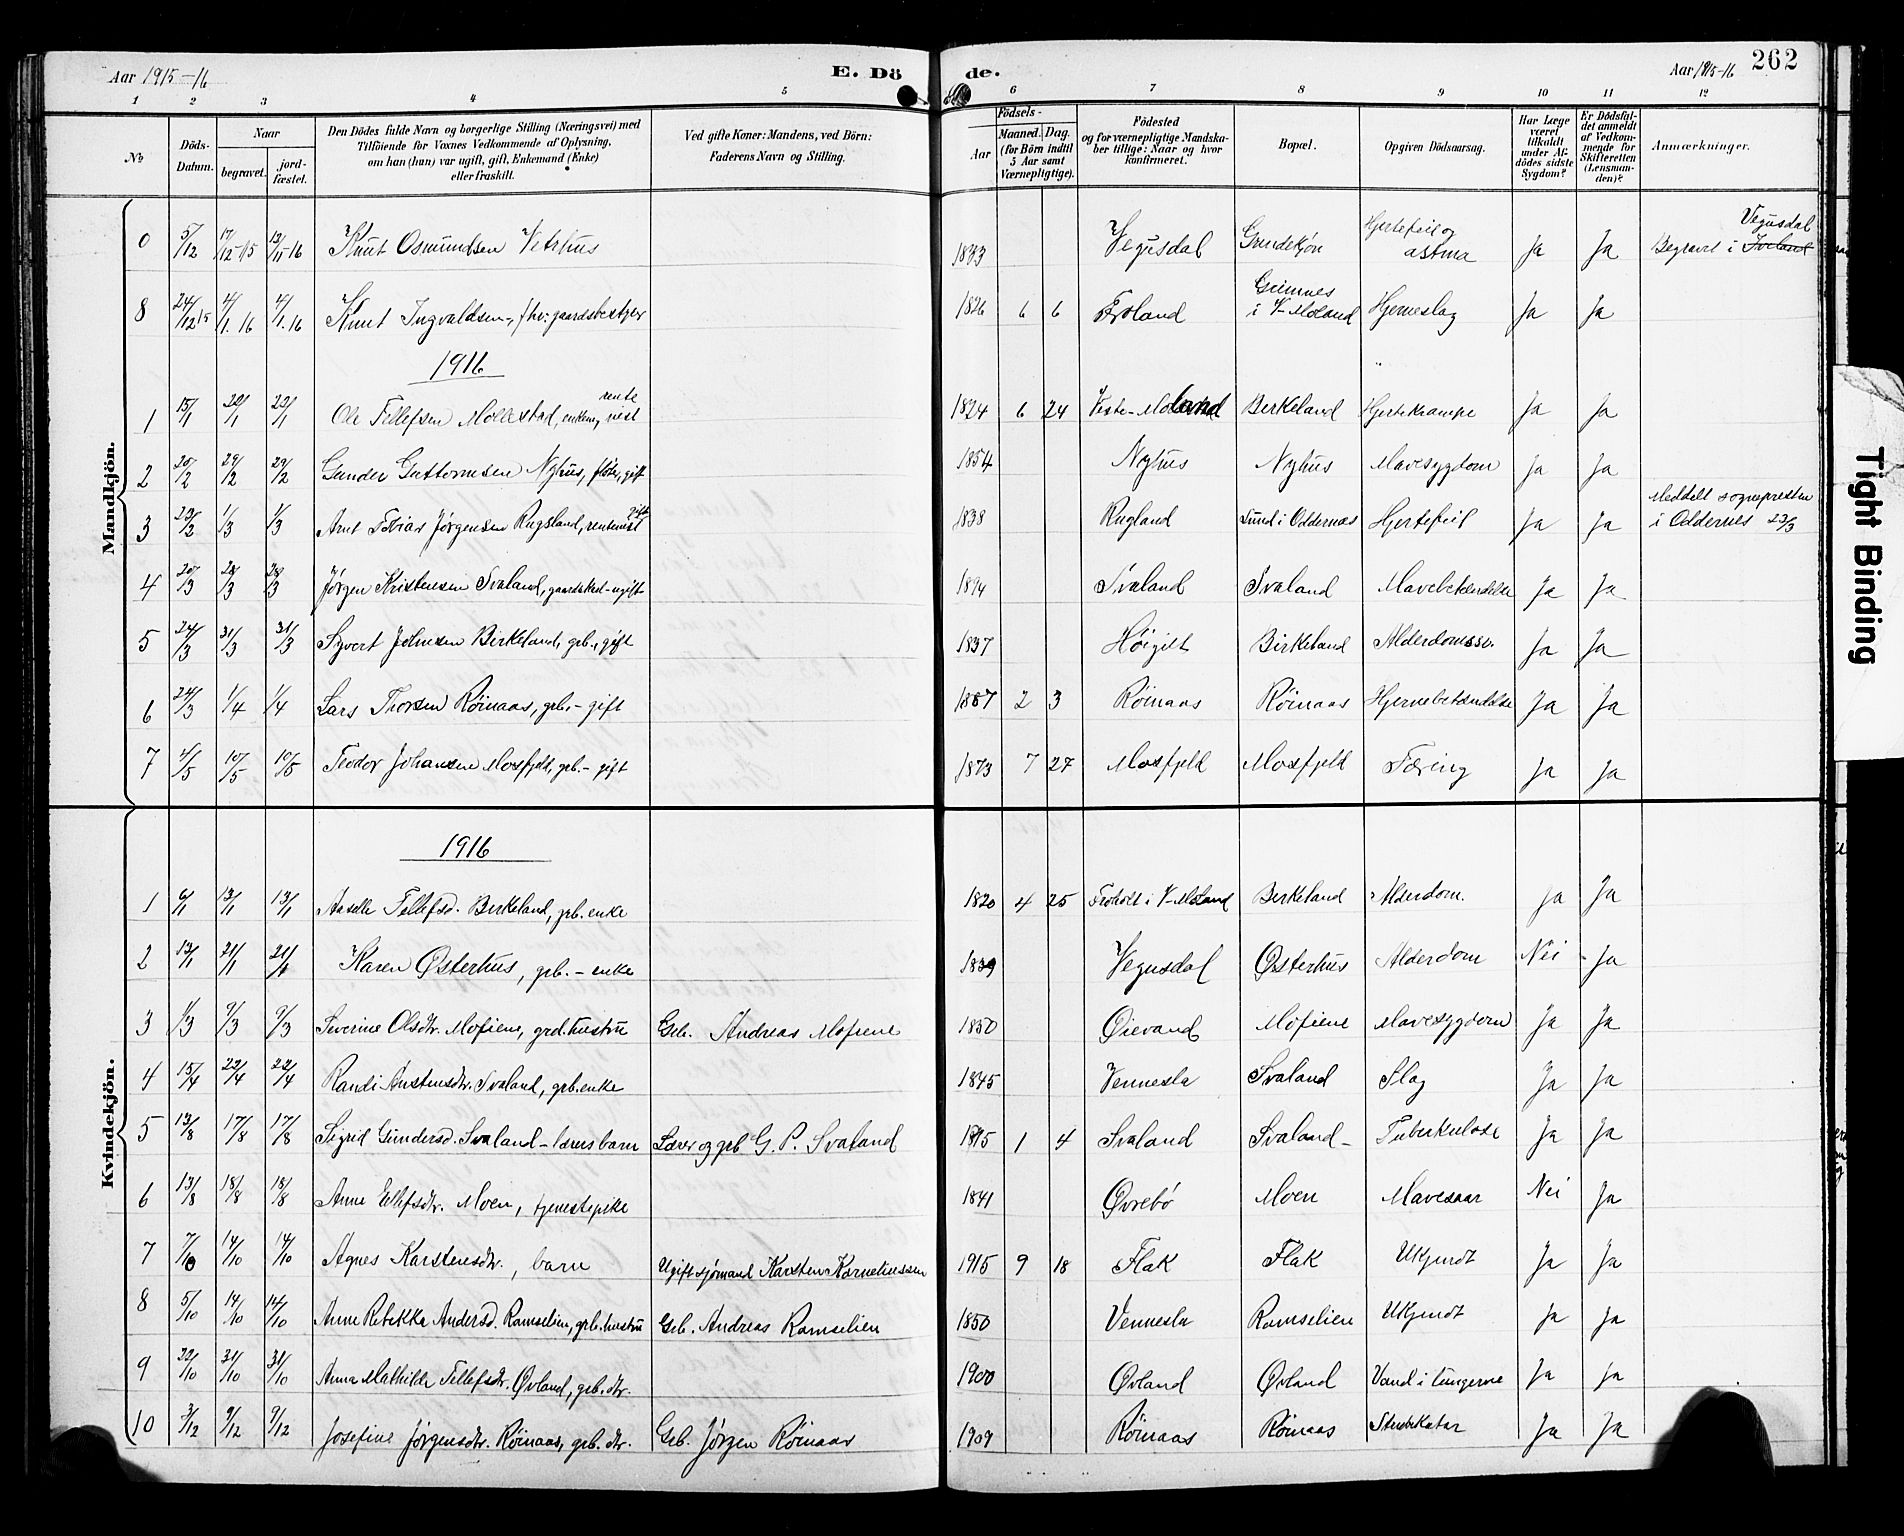 Aar 1915-16 E. Dö de. Aar 1915-16 262
1 2 3 4 5 6 7 8 9 10 11 12
No
Döds-Datum.
Naar
begravet.
jord-fæstet.
Den Dödes fulde Navn og borgerlige Stilling (Næringsvei) med
Tilföiende for Voxnes Vedkommende af Oplysning,
om han (hun) var ugift, gift, Enkemand (Enke)
eller fraskilt.
Ved gifte Koner: Mandens, ved Börn:
Faderens Navn og Stilling.
Födsels-
Aar
Maaned. Dag.
(for Börn indtil
5 Aar samt
Værnepligtige).
Födested
og for værnepligtige Mandska-
ber tillige: Naar og hvor
konfirmeret.
Bopæl.
Opgiven Dödsaarsag.
Har Læge
været
tilkaldt
under Af-
dödes sidste
Sygdom?
Er Dödsfal-
det anmeldt
af Vedkom-
mende for
Skifteretten
(Lensman-
den)?
Anmærkninger.
Mandkjön.
0 5/12 17/12 15 Knut Osmundsen Vetrhus Vegusdal Hjertefeil og astma Ja Ja Begravet i Iveland Vegusdal
8 24/12 15 4/1. 16 4/1. 16 Knut Ingvaldsen, fhv: gaardsbestyrer 1826 6 6 Froland i V-Moland Hjerneslag Ja Ja
1916
1 15/1 22/1 22/1 Ole Tellefsen Mollestad, enkem, rentenist 1824 6 24 Vestre-Moland Birkeland Hjertekrampe Ja Ja
2 20/2 29/2 29/2 Gunder Guttormsen Nyhus, gift 1854 Nyhus Nyhus Mavesygdom Ja Ja
3 1/3 1/3 Arnt Tobias Jørgensen Rugsland, rentenist gift 1838 Rugland Lund i Oddernæs Hjertefeil Ja Ja Meddelt sognepresten i Oddernes 23/3
4 20/3 28/3 28/3 Jørgen Kristensen Svaland, ugift 1894 Svaland Svaland Mavebetændelse Ja Ja
5 24/3 31/3 31/3 Syvert Johnsen Birkeland, grb., gift 1837 Høigilt Birkeland Alderdomssv. Ja Ja
6 24/3 1/4 1/4 Lars Thorsen Røinaas, grb. - gift 1887 2 3 Røinaas Røinaas Hjernebetændelse Ja Ja
7 4/5 10/5 10/5 Teodor Johansen Mosfjeld, grb. - gift 1873 7 27 Mosfjeld Mosfjeld Tæring Ja Ja
Kvindekjön.
1916
1 6/1 13/1 13/1 Aaselle Tellefsd. Birkeland, grb. enke 1820 4 25 i V-Moland Birkeland Alderdom. Ja Ja
2 13/1 21/1 21/1 Karen Østerhus, grb. - enke Vegusdal Østerhus Alderdom Nei Ja
3 1/3 9/3 9/3 Severine Olsdtr. Mofiene, grd. hustru Grb. Andreas Mofiene 1850 Øievand Mofiene Mavesygdom Ja Ja
4 15/4 22/4 22/4 Randi Austensdtr. Svaland, grb. enke 1845 Vennesla Svaland Slag Ja Ja
5 13/8 17/8 17/8 Sigrid Gundersd. Svaland - lærers barn Lærer og grb G. P. Svaland 1915 1 4 Svaland Svaland - Tuberkulose Ja Ja
6 13/8 18/8 18/8 Anne Ellefsdtr. Moen, tjenestepike 1841 Øvrebø Moen Mavesaar Nei Ja
7 7/10 14/10 14/10 Agnes Karstensdtr., barn Ugift sjømand Karsten Korneliussen 1915 9 18 Flak Flak Ukjendt Ja Ja
8 5/10 14/10 14/10 Anne Rebekka Andersd. Ramselien, grb. hustru Grb. Andreas Ramselien 1850 Vennesla Ramselien Ukjendt Ja Ja
9 22/10 31/10 31/10 Anna Mathilde Tellefsdtr. Øvland, grb. dtr. 1900 Øvland Øvland Vand i lungerne Ja Ja
10 3/12 9/12 9/12 Josefine Jørgensdtr. Røinaas, grb. dtr. Grb. Jørgen Røinaas 1909 Røinaas Røinaas Ja Ja
Tight Binding